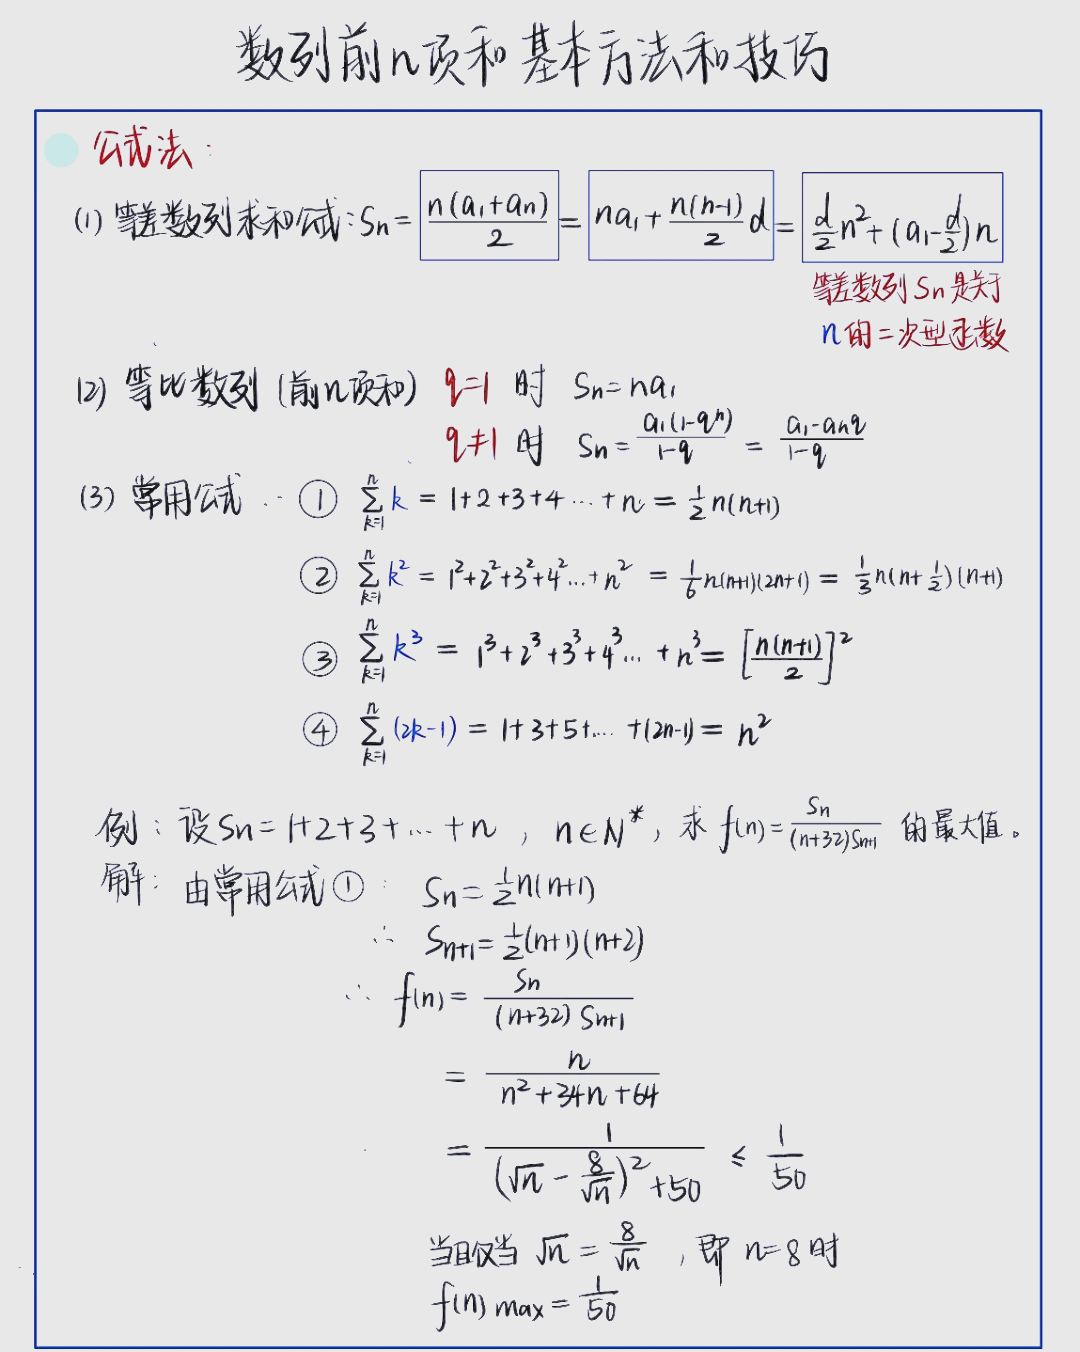 数列前n项和基本方法和技巧
公式法:
(1) 等差数列求和公式: Sn = n(a₁+an)/2 = na₁ + n(n-1)/2 d = d/2 n² + (a₁ - d/2)n
等差数列 Sn 是关于
n 的二次型函数
(2) 等比数列 (前n项和) q=1 时 Sn = na₁
q≠1 时 Sn = a₁(1-qⁿ)/(1-q) = (a₁-anq)/(1-q)
(3) 常用公式: ① ∑ₖ₌₁ⁿ k = 1+2+3+4…+n = 1/2 n(n+1)
② ∑ₖ₌₁ⁿ k² = 1²+2²+3²+4²…+n² = 1/6 n(n+1)(2n+1) = 1/3 n(n+1/2)(n+1)
③ ∑ₖ₌₁ⁿ k³ = 1³+2³+3³+4³…+n³ = [n(n+1)/2]²
④ ∑ₖ₌₁ⁿ (2k-1) = 1+3+5+…+(2n-1) = n²
例: 设Sn = 1+2+3+…+n, n∈N*, 求 f(n) = Sn/((n+32)Sn+1) 的最大值。
解: 由常用公式①: Sn = 1/2 n(n+1)
∴ Sn+1 = 1/2 (n+1)(n+2)
∴ f(n) = Sn/((n+32) Sn+1)
= n/(n²+34n+64)
= 1/((√n - 8/√n)²+50) ≤ 1/50
当且仅当 √n = 8/√n, 即 n=8 时
f(n) max = 1/50